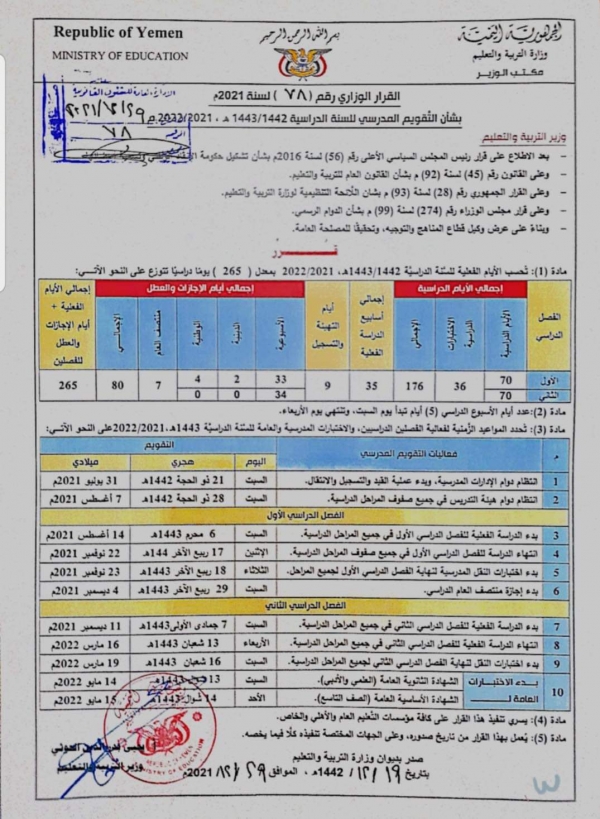 Republic of Yemen
MINISTRY OF EDUCATION
بسم الله الرحمن الرحيم
الجمهورية اليمنية
وزارة التربية والتعليم
مكتب الوزير
القرار الوزاري رقم (٧٨) لسنة 2021م
بشأن التقويم المدرسي للسنة الدراسية 1443/1442هـ ، 2022/2021م
وزير التربية والتعليم
– بعد الاطلاع على قرار رئيس المجلس السياسي الأعلى رقم (56) لسنة 2016م بشأن تشكيل حكومة
– وعلى القانون رقم (45) لسنة (92) م بشأن القانون العام للتربية والتعليم.
– وعلى القرار الجمهوري رقم (28) لسنة (93) م بشان اللائحة التنظيمية لوزارة التربية والتعليم.
– وعلى قرار مجلس الوزراء رقم (274) لسنة (99) م بشأن الدوام الرسمي.
– وبناءً على عرض وكيل قطاع المناهج والتوجيه، وتحقيقًا للمصلحة العامة.
قـــرر
مادة (1): تُحسب الأيام الفعلية للسنة الدراسية 1443/1442هـ، 2022/2021م بمعدل ( 265 ) يومًا دراسيًا تتوزع على النحو الآتي:
الفصل الدراسي
إجمالي الأيام الدراسية
إجمالي أسابيع الدراسة الفعلية
أيام التهيئة والتسجيل
إجمالي أيام الإجازات والعطل
إجمالي الأيام الفعلية + أيام الإجازات والعطل للفصلين
الأيام الدراسية
الاختبارات الدراسية
الإجمالي
الأسبوعية
الدينية
الوطنية
منتصف العام
الإجمالي
الأول 70 36 176 35 9 33 2 4 7 80 265
الثاني 70 34 0 0
مادة (2): عدد أيام الأسبوع الدراسي (5) أيام تبدأ يوم السبت، وتنتهي يوم الأربعاء.
مادة (3): تُحدد المواعيد الزمنية لفعالية الفصلين الدراسيين، والاختبارات المدرسية والعامة للسنة الدراسية 1443هـ، 2022/2021م على النحو الآتي:
م فعاليات التقويم المدرسي التقويم
اليوم هجري ميلادي
1 انتظام دوام الإدارات المدرسية، وبدء عملية القيد والتسجيل والانتقال. السبت 21 ذو الحجة 1442هـ 31 يوليو 2021م
2 انتظام دوام هيئة التدريس في جميع صفوف المراحل الدراسية. السبت 28 ذو الحجة 1442هـ 7 أغسطس 2021م
الفصل الدراسي الأول
3 بدء الدراسة الفعلية للفصل الدراسي الأول في جميع المراحل الدراسية. السبت 6 محرم 1443هـ 14 أغسطس 2021م
4 انتهاء الدراسة للفصل الدراسي الأول في جميع صفوف المراحل الدراسية. الإثنين 17 ربيع الآخر 144هـ 22 نوفمبر 2021م
5 بدء اختبارات النقل المدرسية لنهاية الفصل الدراسي الأول لجميع المراحل. الثلاثاء 18 ربيع الآخر 1443هـ 23 نوفمبر 2021م
6 بدء إجازة منتصف العام الدراسي. السبت 29 ربيع الآخر 1443هـ 4 ديسمبر 2021م
الفصل الدراسي الثاني
7 بدء الدراسة الفعلية للفصل الدراسي الثاني في جميع المراحل الدراسية. السبت 7 جمادى الأولى 1443هـ 11 ديسمبر 2021م
8 انتهاء الدراسة الفعلية للفصل الدراسي الثاني في جميع المراحل الدراسية. الأربعاء 13 شعبان 1443هـ 16 مارس 2022م
9 بدء اختبارات النقل لنهاية الفصل الدراسي الثاني لجميع المراحل الدراسية. السبت 16 شعبان 1443هـ 19 مارس 2022م
10 بدء الاختبارات العامة لـ الشهادة الثانوية العامة (العلمي والأدبي). السبت 13 شوال 1443هـ 14 مايو 2022م
الشهادة الأساسية العامة (الصف التاسع). الأحد 14 شوال 1443هـ 15 مايو 2022م
مادة (4): يسري تنفيذ هذا القرار على كافة مؤسسات التعليم العام والأهلي والخاص.
مادة (5): يُعمل بهذا القرار من تاريخ صدوره، وعلى الجهات المختصة تنفيذه كلًا فيما يخصه.
صدر بديوان وزارة التربية والتعليم
بتاريخ ١٩/١٢/ 1442هـ ، الموافق ٢٩/ 2021م
يحيى بدر الدين الحوثي
وزير التربية والتعليم
MINISTRY OF EDUCATION